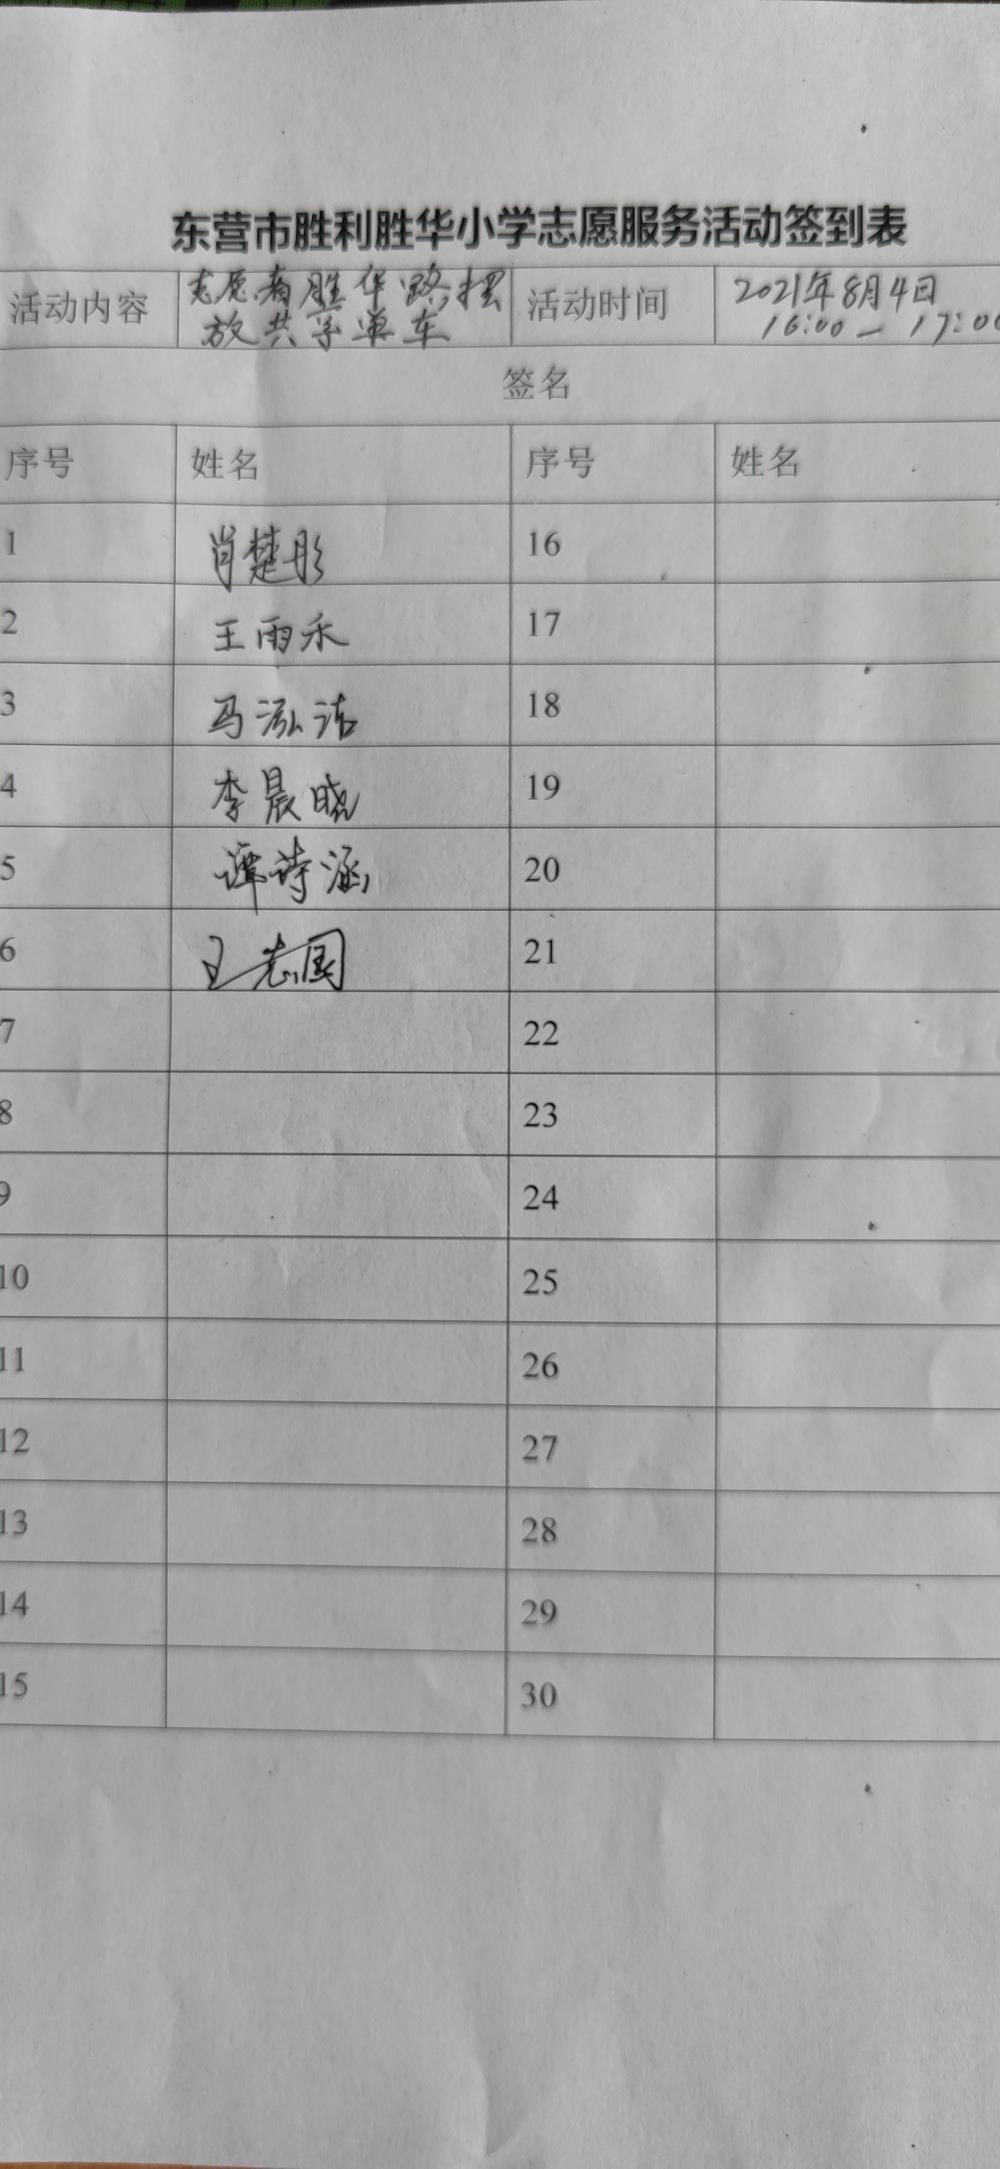 东营市胜利胜华小学志愿服务活动签到表
活动内容 志愿者胜华路摆 活动时间 2021年8月4日
放共享单车 16:00 — 17:00
签名
序号 姓名 序号 姓名
1 肖楚彤 16
2 王雨禾 17
3 马泓洁 18
4 李晨晓 19
5 谭诗涵 20
6 王志国 21
7 22
8 23
9 24
10 25
11 26
12 27
13 28
14 29
15 30